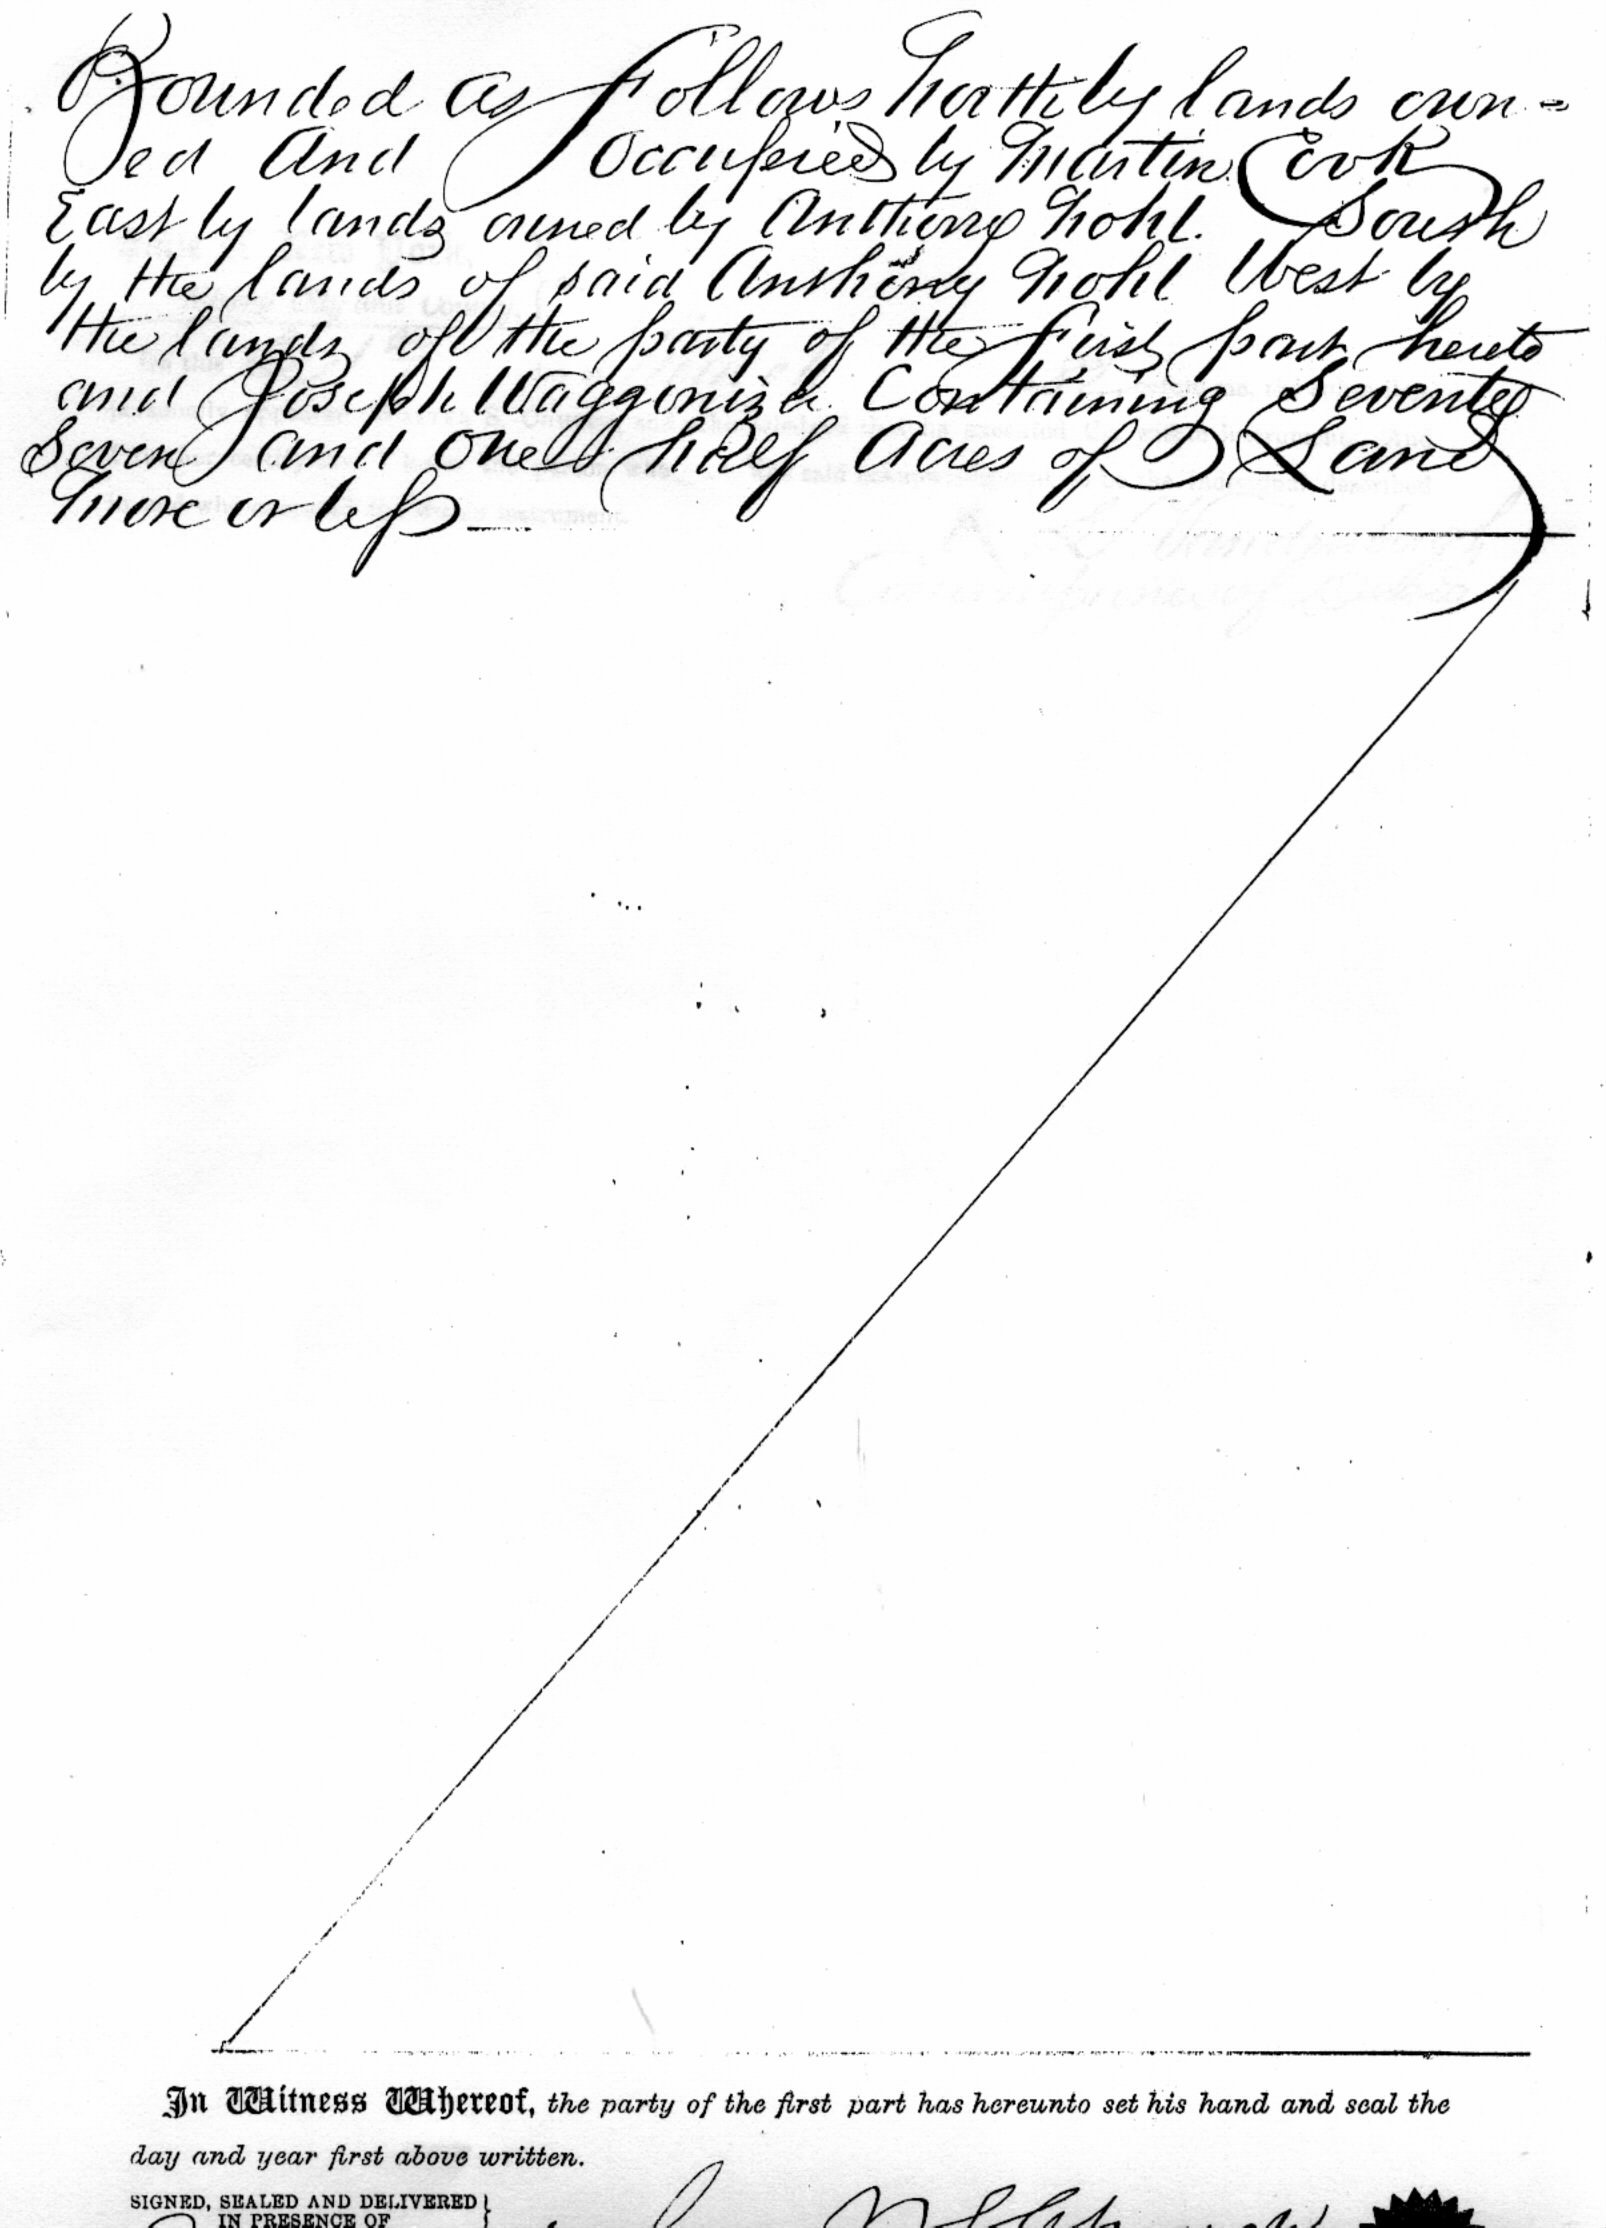 Bounded as Follows North by lands own=
ed And Occupied by Martin Cook
East by lands owned by Anthony Nohl. South
by the lands of said Anthony Nohl West by
the lands of the party of the First part hereto
and Joseph Waggonizer Containing Seventy
Seven and One half Acres of Land
More or less
In Witness Whereof, the party of the first part has hereunto set his hand and seal the
day and year first above written.
SIGNED, SEALED AND DELIVERED
IN PRESENCE OF